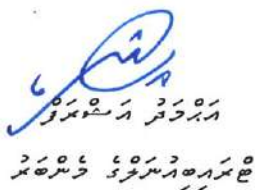 އަޙްމަދު އަޝްރަފް
ޓްރައިބިއުނަލްގެ މެންބަރު